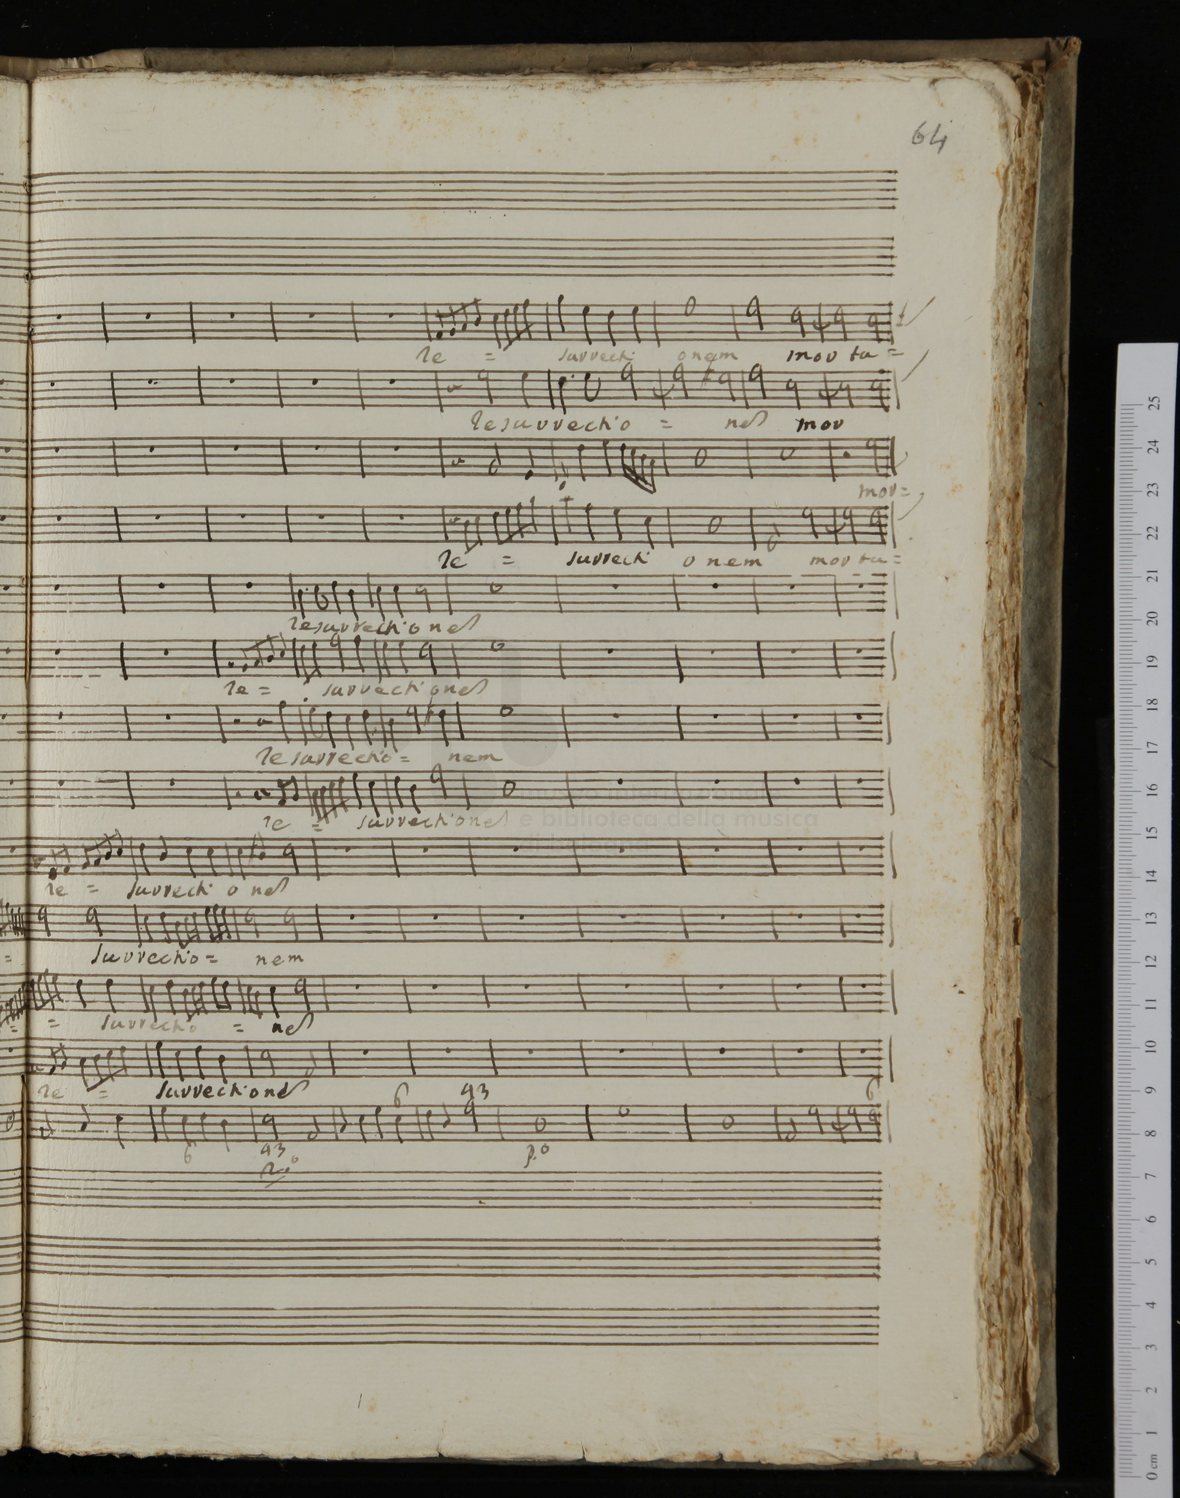 64
re = surrecti onem mor tu=
Resurrectio = nem mor
mor=
re = surrecti onem mor tu=
resurrectionem
re = surrectionem
resurrectio= nem
re = surrectionem
re = surrecti onem
= surrectio= nem
= = surrectio = nem
re = surrectionem
6 43 6
6 43 p.o
2.o
e biblioteca della musica
25
24
23
22
21
20
19
18
17
16
15
14
13
12
11
10
9
8
7
6
5
4
3
2
1
0 cm